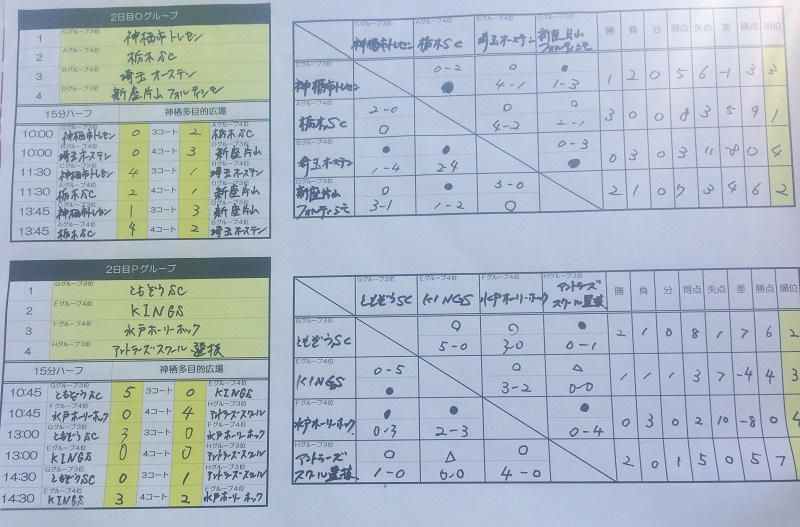 2日目Oグループ
1 Cグループ3位 神栖市トレセン
2 Aグループ4位 栃木SC
3 Bグループ4位 埼玉オーステン
4 Dグループ3位 新座片山フォルティシモ
15分ハーフ 神栖多目的広場
10:00 神栖市トレセン 0 3コート 2 栃木SC
10:00 埼玉オーステン 0 4コート 3 新座片山
11:30 神栖市トレセン 4 3コート 1 埼玉オーステン
11:30 栃木SC 2 4コート 1 新座片山
13:45 神栖市トレセン 1 3コート 3 新座片山
13:45 栃木SC 4 4コート 2 埼玉オーステン
神栖市トレセン 栃木SC 埼玉オーステン 新座片山フォルティシモ 勝 負 分 得点 失点 差 勝点 順位
神栖市トレセン 0-2 ● ○ 4-1 ● 1-3 1 2 0 5 6 -1 3 3
栃木SC 2-0 ○ ○ 4-2 ○ 2-1 3 0 0 8 3 5 9 1
埼玉オーステン ● 1-4 ● 2-4 0-3 ● 0 3 0 3 11 -8 0 4
新座片山フォルティシモ ○ 3-1 ● 1-2 3-0 ○ 2 1 0 7 3 4 6 2
2日目Pグループ
1 Gグループ3位 ともぞうSC
2 Eグループ4位 KINGS
3 Fグループ4位 水戸ホーリーホック
4 Hグループ3位 アントラーズスクール選抜
15分ハーフ 神栖多目的広場
10:45 ともぞうSC 5 3コート 0 KINGS
10:45 水戸ホーリーホック 0 4コート 4 アントラーズスクール
13:00 ともぞうSC 3 3コート 0 水戸ホーリーホック
13:00 KINGS 0 4コート 0 アントラーズスクール
14:30 ともぞうSC 0 3コート 1 アントラーズスクール
14:30 KINGS 3 4コート 2 水戸ホーリーホック
ともぞうSC KINGS 水戸ホーリーホック アントラーズスクール選抜 勝 負 分 得点 失点 差 勝点 順位
ともぞうSC ○ 5-0 ○ 3-0 ● 0-1 2 1 0 8 1 7 6 2
KINGS 0-5 ● ○ 3-2 △ 0-0 1 1 1 3 7 -4 4 3
水戸ホーリーホック ● 0-3 ● 2-3 ● 0-4 0 3 0 2 10 -8 0 4
アントラーズスクール選抜 ○ 1-0 △ 0-0 ○ 4-0 2 0 1 5 0 5 7